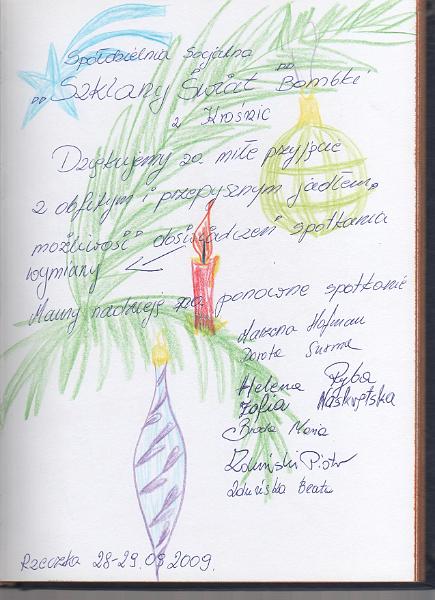 Spółdzielnia Socjalna
„Szklany Świat Bombki"
z Krośnic
Dziękujemy za miłe przyjęcie
z obfitym i przepysznym jadłem,
możliwość doświadczeń spotkania
wymiany
Mamy nadzieję na ponowne spotkanie
Marzena Hofman
Dorota Surma
Helena Ryba
Zofia Naskrętska
Broda Maria
Zduński Piotr
Zduńska Beata
Rzeczka 28-29.08 2009.